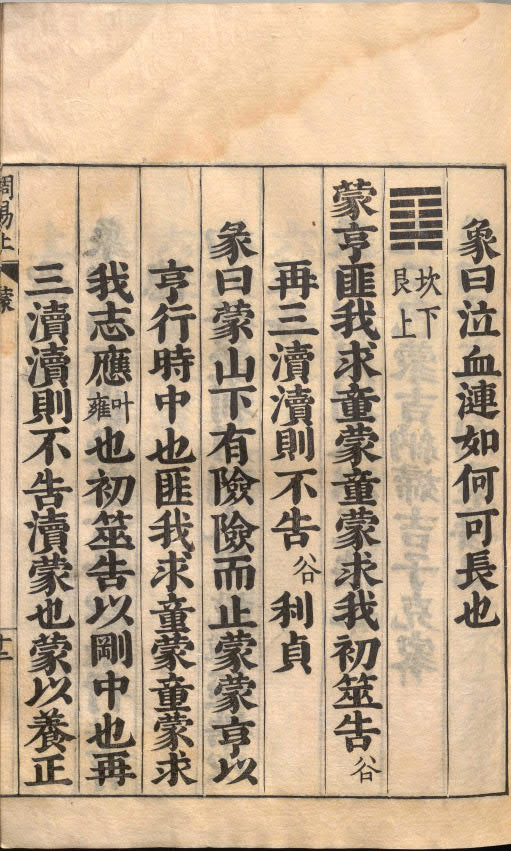 象曰泣血漣如何可長也
坎下
艮上
蒙亨匪我求童蒙童蒙求我初筮告谷
再三瀆瀆則不告谷利貞
彖曰蒙山下有險險而止蒙蒙亨以
亨行時中也匪我求童蒙童蒙求
我志應叶雍也初筮告以剛中也再
三瀆瀆則不告瀆蒙也蒙以養正
周易上
蒙
十二